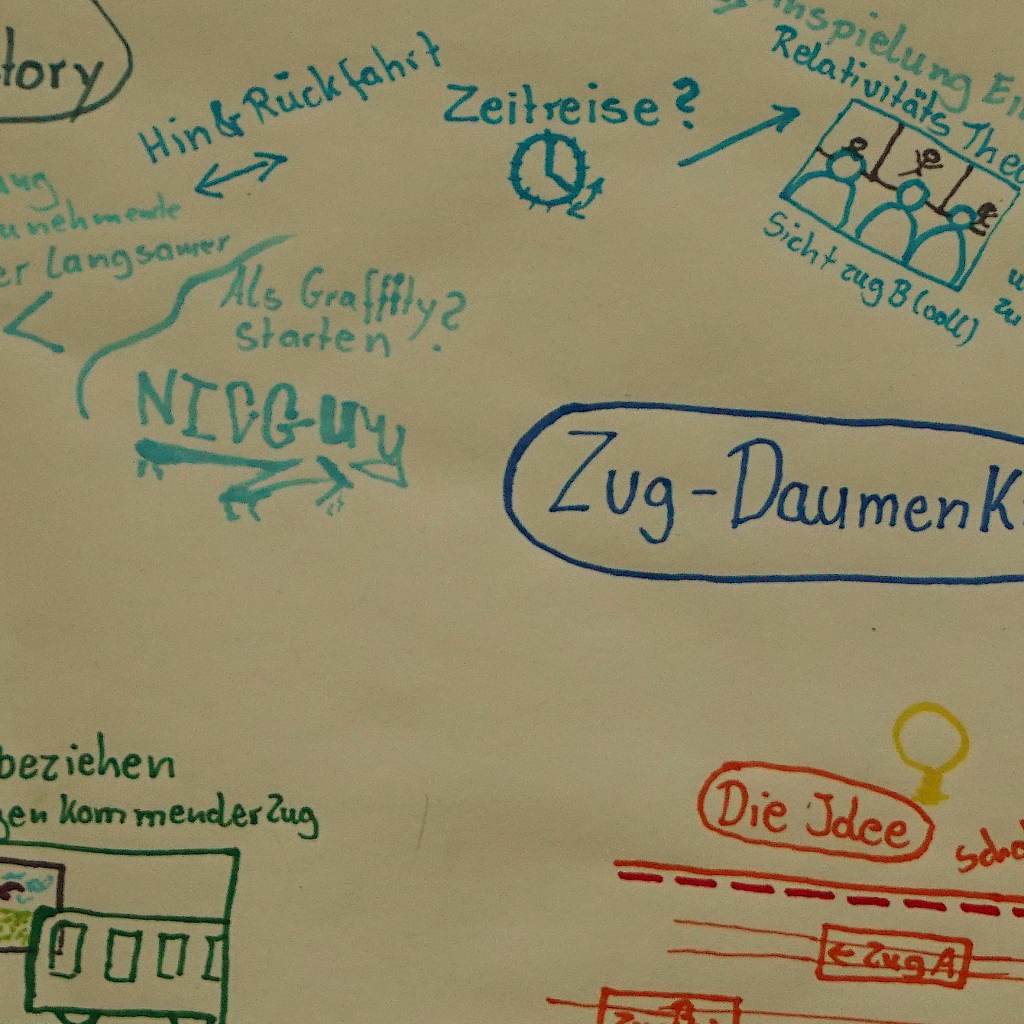 tory
Hin & Rückfahrt
Zeitreise?
nspielung
Relativitäts
Sicht zug B (voll)
zu
unehmende
er Langsamer
Als Graffity?
Starten
Zug-Daumenk
beziehen
gen Kommender Zug
Die Idee
← Zug A